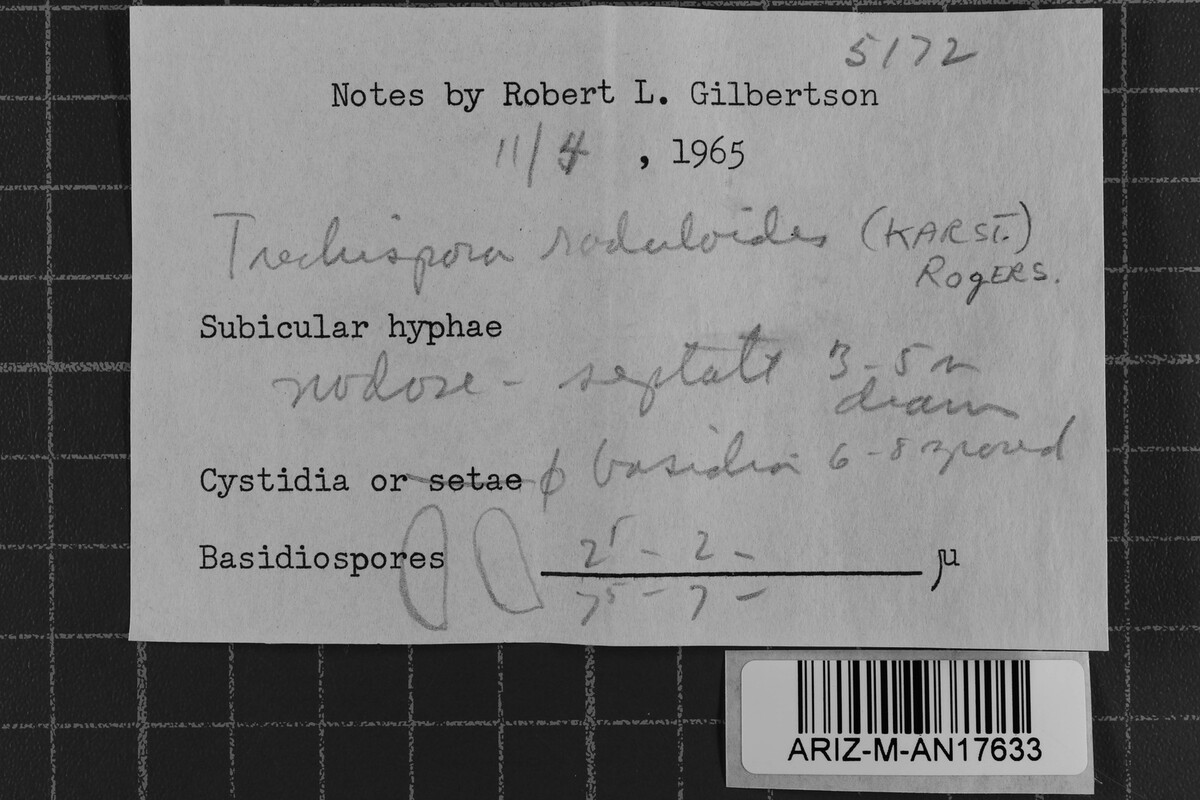 5172
Notes by Robert L. Gilbertson
11/4, 1965
Trechispora raduloides (KARST.)
ROGERS.
Subicular hyphae
nodose - septate 3-5 µ
diam
Cystidia or setae φ basidia 6-8 spored
Basidiospores 2⁵ - 2 - µ
7⁵ - 7 -
ARIZ-M-AN17633